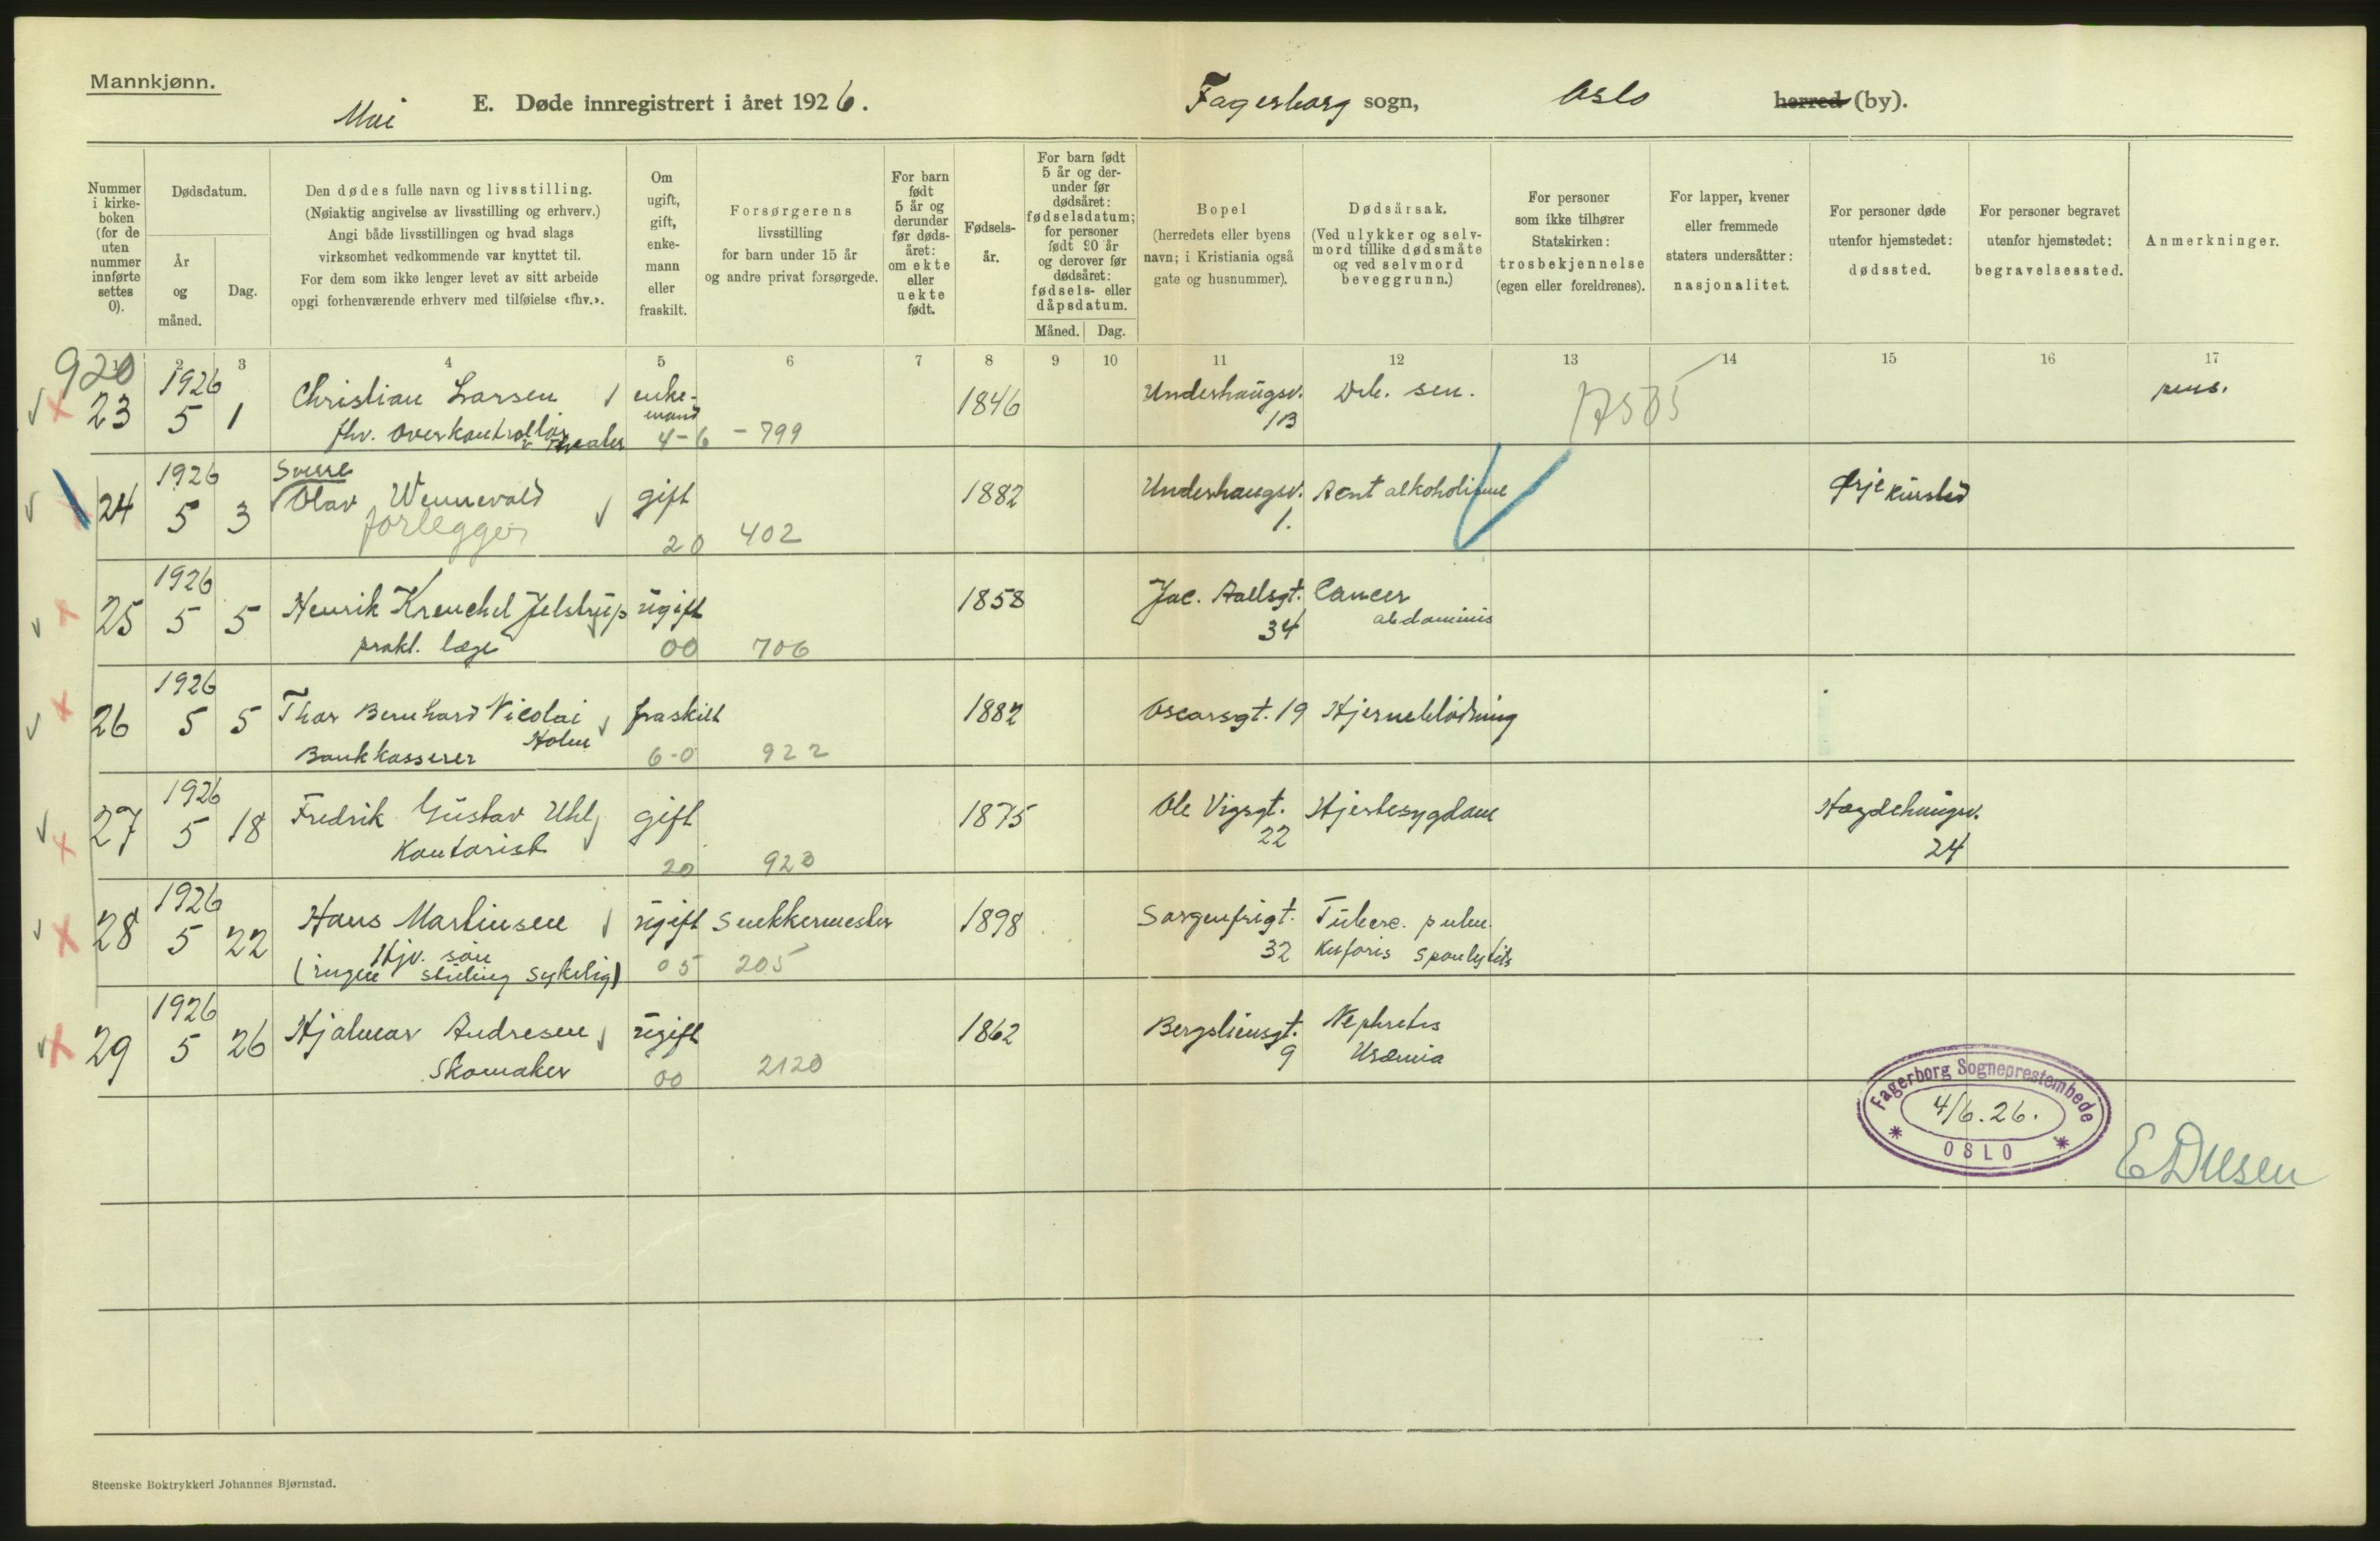 Mannkjønn.
Mai
E. Døde innregistrert i året 1926.
Fagerborg sogn,
Oslo
herred (by).
Nummer i kirke-boken (for de uten nummer innførte settes 0).
Dødsdatum.
År og måned.
Dag.
Den dødes fulle navn og livsstilling.
(Nøiaktig angivelse av livsstilling og erhverv.)
Angi både livsstillingen og hvad slags
virksomhet vedkommende var knyttet til.
For dem som ikke lenger levet av sitt arbeide
opgi forhenværende erhverv med tilføielse «fhv.».
Om ugift, gift, enke-mann eller fraskilt.
Forsørgerens
livsstilling
for barn under 15 år
og andre privat forsørgede.
For barn født 5 år og derunder før døds-året: om ekte eller uekte født.
Fødsels-år.
For barn født 5 år og der-under før dødsåret: fødselsdatum; for personer født 90 år og derover før dødsåret: fødsels- eller dåpsdatum.
Måned.
Dag.
Bopel
(herredets eller byens
navn; i Kristiania også
gate og husnummer).
Dødsårsak.
(Ved ulykker og selv-
mord tillike dødsmåte
og ved selvmord
beveggrunn.)
For personer
som ikke tilhører
Statskirken:
trosbekjennelse
(egen eller foreldrenes).
For lapper, kvener
eller fremmede
staters undersåtter:
nasjonalitet.
For personer døde
utenfor hjemstedet:
dødssted.
For personer begravet
utenfor hjemstedet:
begravelsessted.
Anmerkninger.
2 3 4 5 6 7 8 9 10 11 12 13 14 15 16 17
920
1926
23 5 1 Christian Larsen enke-mand 1846 Underhaugsv. 1B Deb. sen. pens.
fhv. Overkontrollør v. Theater 4-6 - 799
1926
24 5 3 Sverre Olav Wennevold gift 1882 Underhaugsv. 1. Acut alkoholisme Ørje
forlegger 20 402
1926
25 5 5 Henrik Kreuchel Jelstrup ugift 1858 Jac. Aallsgt. 34 Cancer abdominis
prakt. læge 00 706
1926
26 5 5 Thor Bernhard Nicolai Holm fraskilt 1882 Oscarsgt. 19 Hjerneblødning
Bankkasserer 6-0 922
1926
27 5 18 Fredrik Gustav Uhl gift 1875 Ole Vigsgt. 22 Hjertesygdom Hægdehaugsv. 24
Kontorist 20 923
1926
28 5 22 Hans Martinsen ugift Snekkermester 1898 Sorgenfrigt. 32 Tuberc. pulm.
Hjv. søn
(ingen stilling sykelig) 05 205 Kyforis Spondylitis
1926
29 5 26 Hjalmar Andresen ugift 1862 Bergsliensgt. 9 Nephritis
Skomaker 00 2120 Uræmia
Fagerborg Sogneprestembede
4/6.26.
OSLO
Steenske Boktrykkeri Johannes Bjørnstad.